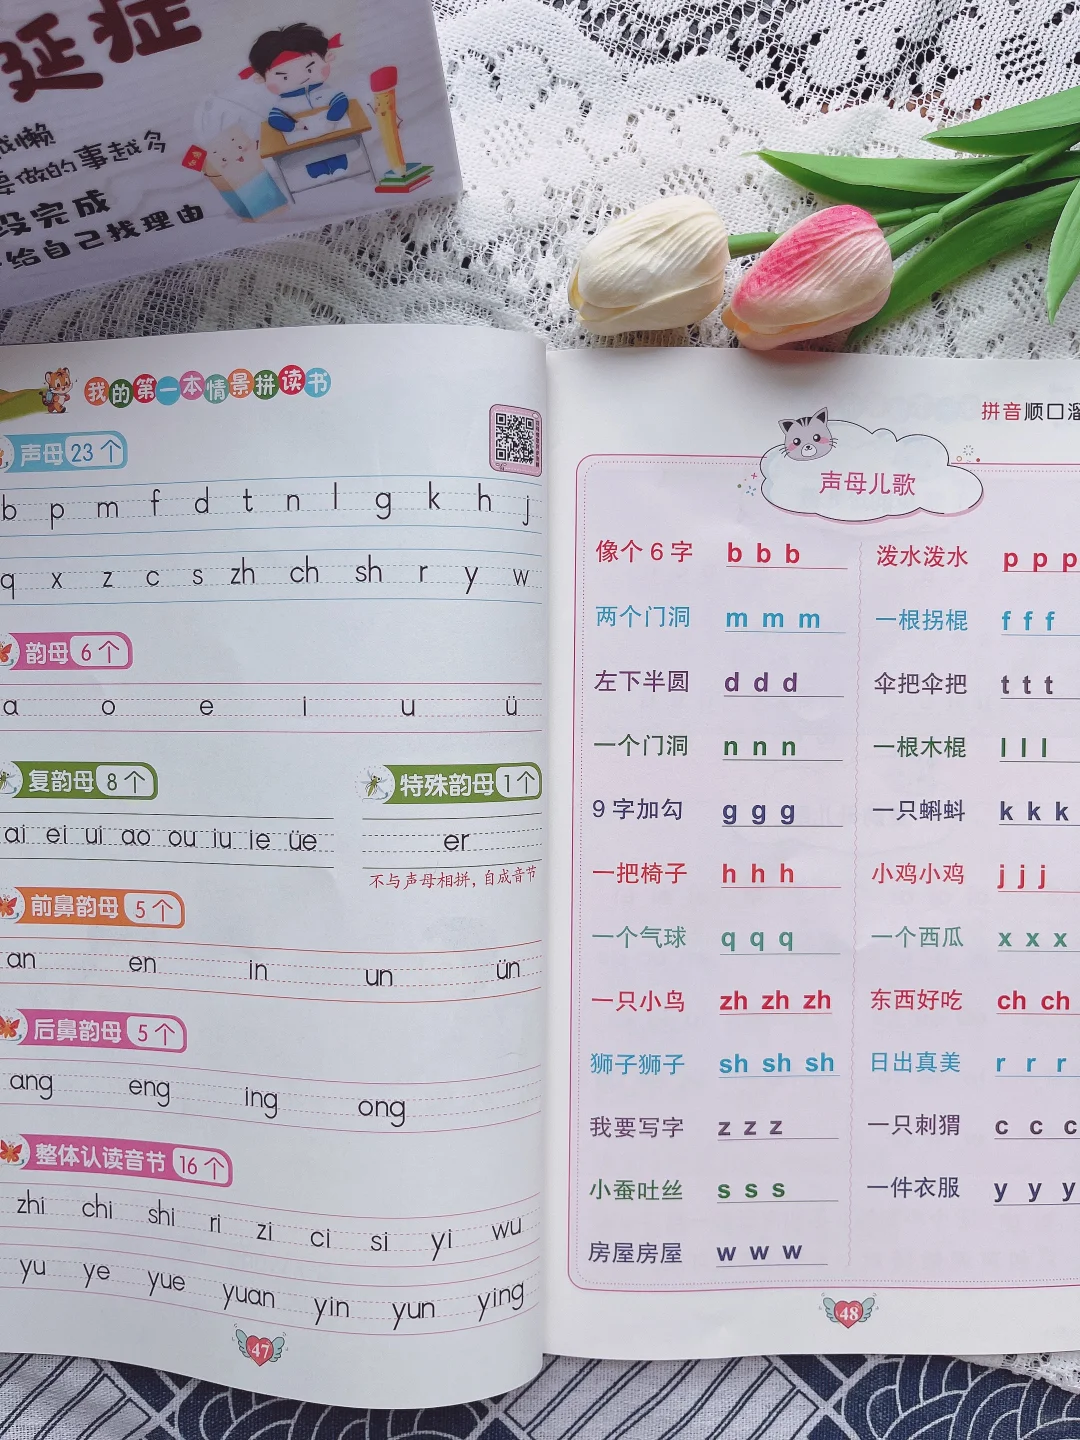 延症
我懒
要做的事越多
没完成
给自己找理由
我的第一本情景拼读书
声母 23 个
b p m f d t n l g k h j
q x z c s zh ch sh r y w
韵母 6 个
a o e i u ü
复韵母 8 个
ai ei ui ao ou iu ie üe
特殊韵母 1 个
er
不与声母相拼，自成音节
前鼻韵母 5 个
an en in un ün
后鼻韵母 5 个
ang eng ing ong
整体认读音节 16 个
zhi chi shi ri zi ci si yi wu
yu ye yue yuan yin yun ying
47
拼音顺口溜
声母儿歌
像个 6 字 b b b 泼水泼水 p p p
两个门洞 m m m 一根拐棍 f f f
左下半圆 d d d 伞把伞把 t t t
一个门洞 n n n 一根木棍 l l l
9 字加勾 g g g 一只蝌蚪 k k k
一把椅子 h h h 小鸡小鸡 j j j
一个气球 q q q 一个西瓜 x x x
一只小鸟 zh zh zh 东西好吃 ch ch
狮子狮子 sh sh sh 日出真美 r r r
我要写字 z z z 一只刺猬 c c c
小蚕吐丝 s s s 一件衣服 y y y
房屋房屋 w w w
48